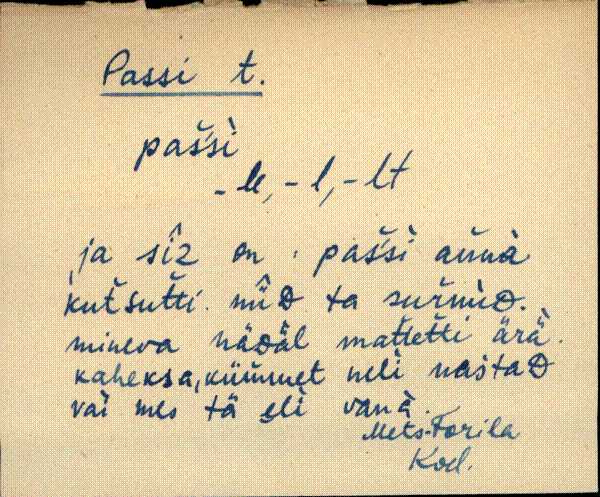 Passi t.
pašši
-le, -l, -lt
ja sîz on pašši aǹna
kutsutti nîiD ta suřnuD.
mineva näDäl mattetti ärä.
kaheksa,kümmet neli uastaD
vai mes tä eli vana.
Mets-Torila
Kod.